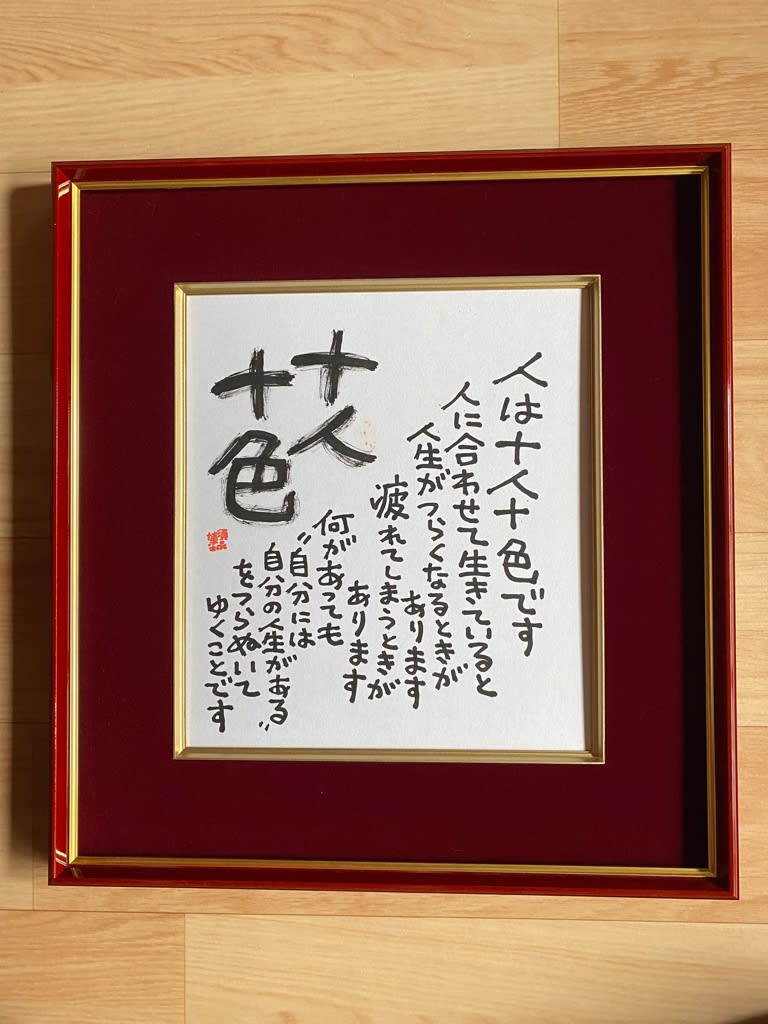 人は十人十色です
人に合わせて生きていると
人生がつらくなるときが
あります
疲れてしまうときが
あります
何があっても
"自分には
自分の人生がある"
をつらぬいて
ゆくことです
十人
十色